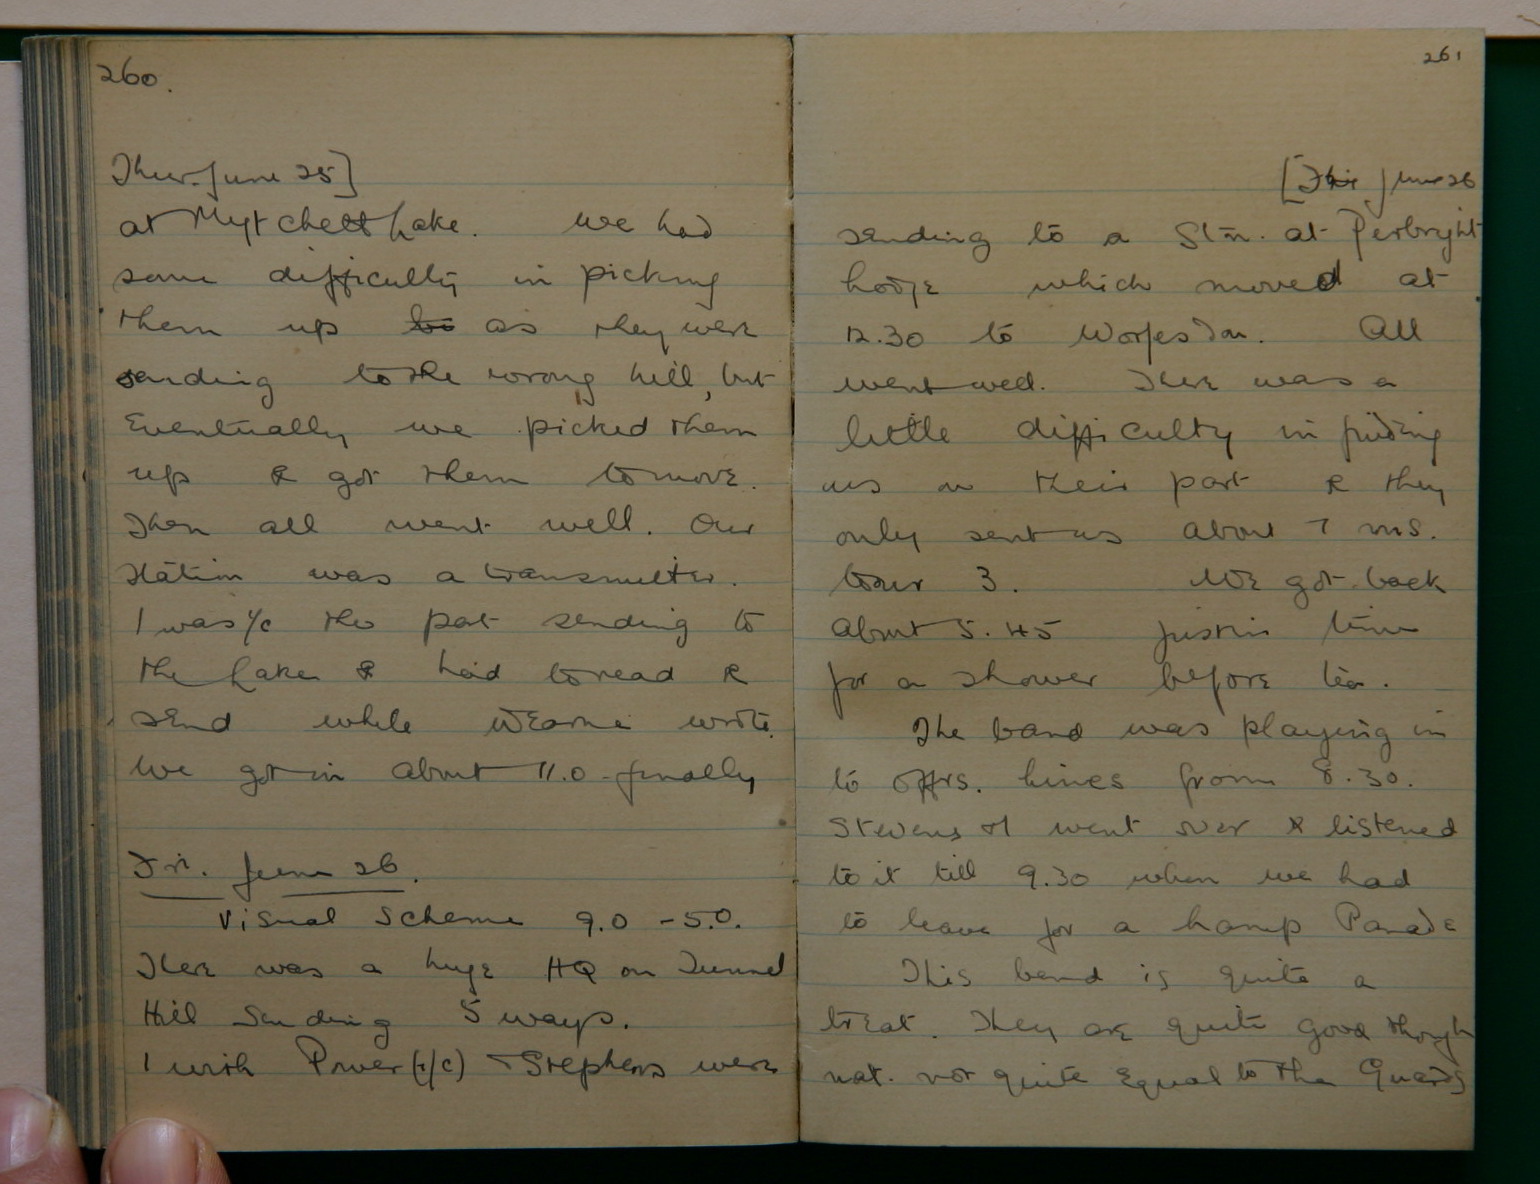 260.
Thur. June 25]
at Mytchett Lake. We had
some difficulty in picking
them up to as they were
sending to the wrong hill, but
eventually we picked them
up & got them to move.
Then all went well. Our
station was a transmitter.
I was i/c the part sending to
the Lake & had to read &
send while Wearne wrote.
We got in about 11.0 finally
Fri. June 26.
Visual Scheme 9.0 - 5.0.
There was a huge HQ on Tunnel
Hill sending 5 ways.
I with Power (i/c) & Stephens were
261
[Fri June 26
sending to a Stn. at Perbright
Lodge which moved at
12.30 to Worpesdon. All
went well. There was a
little difficulty in finding
us on their part & they
only sent us about 7 ms.
to our 3. We got back
about 5.45 just in time
for a shower before tea.
The band was playing in
to offrs. lines from 8.30.
Stevens & I went over & listened
to it till 9.30 when we had
to leave for a Lamp Parade
This band is quite a
treat. They are quite good though
nat. not quite equal to the Guards